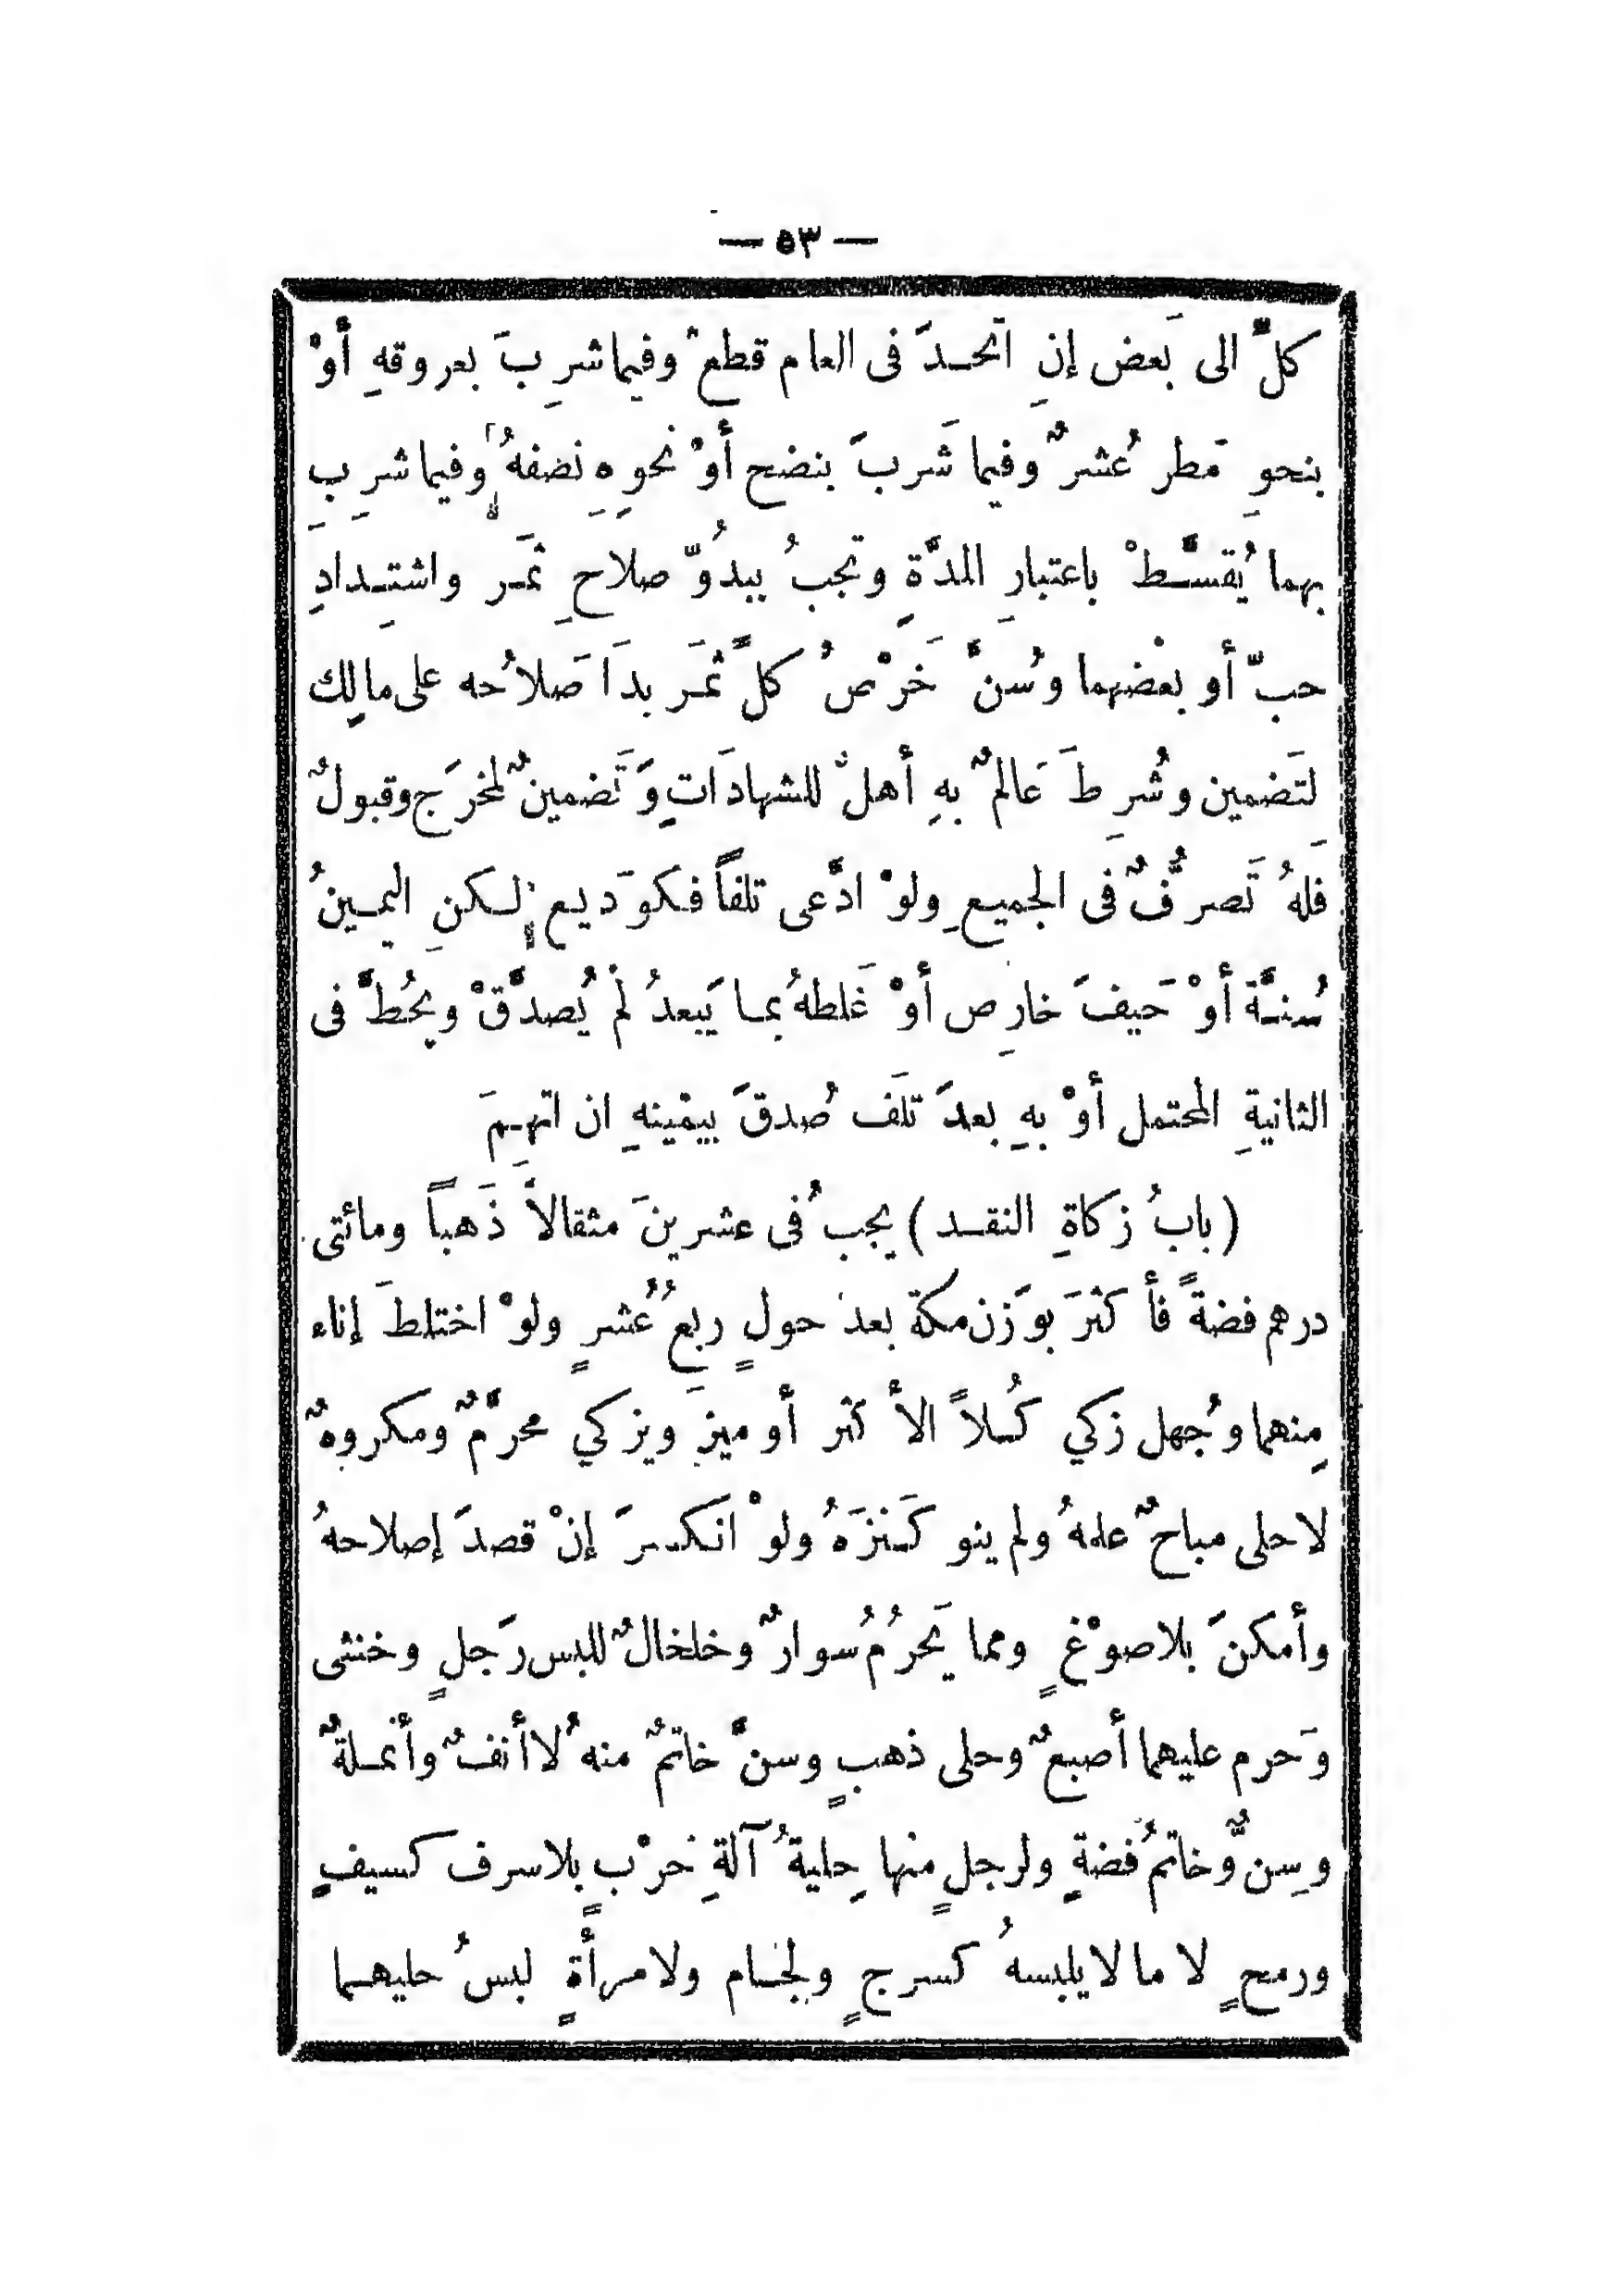 — ٥٣ —
كلٍّ الى بَعض إنِ اتحدَ فى العام قطعٌ وفيما شرِبَ بعروقهِ أوْ
بنحوِ مَطر عُشرٌ وفيما شَربَ بنضح أوْ نحوِهِ نِصْفهُ وفيما شرِبَ
بهما يُقسَّطْ باعتبارِ المدَّةِ وتجبُ ببدُوِّ صلاحِ ثمَر واشتِدادِ
حبّ أو بعْضهما وسُنَّ خَرْصُ كلِّ ثمَر بدَا صَلاحُه على مالِك
لتَضمين وشُرِطَ عَالمٌ بهِ أهلٌ للشهادَاتِ وَتَضمينٌ لمخرَج وقبولٌ
فَلهُ تَصرُّفٌ فى الجميعِ ولوْ ادَّعى تلفاً فكوَديع لكنِ اليمينُ
سُنةٌ أوْ حَيفَ خارِص أوْ غَلطهُ بما يَبعدُ لمْ يُصدَّقْ ويحُطُّ فى
الثانيةِ المحتمل أوْ بهِ بعدَ تلَف صُدقَ بيمْينهِ ان اتهِمَ
(بابُ زكاةِ النقد) يجبُ فى عشرينَ مثقالاً ذَهباً ومائتى
درهم فضةً فأكثرَ بوَزن مكةَ بعد حولٍ ربعُ عُشرٍ ولوْ اختلطَ إناء
مِنهما وجُهل زكي كُلاًّ الأكثر أو ميزَ ويزكي محرَّمٌ ومكروهٌ
لا حلى مباحٌ علمهُ ولم ينو كَنزَهُ ولوْ انكسرَ إنْ قصدَ إصلاحهُ
وأمكنَ بلا صوْغٍ ومما يَحرُمُ سوارٌ وخلخالٌ للبس رَجلٍ وخنثى
وَحرم عليهما أصبعٌ وحلى ذهبٍ وسنَّ خاتمٌ منه لا أنفٌ وأنملةٌ
وسِنٌّ وخاتمُ فضةٍ ولرجلٍ منها حِليةُ آلةِ حرْبٍ بلا سرف كسيفٍ
ورمحٍ لا ما لا يلبسهُ كسرجٍ ولجام ولامرأةٍ لبسُ حليهما